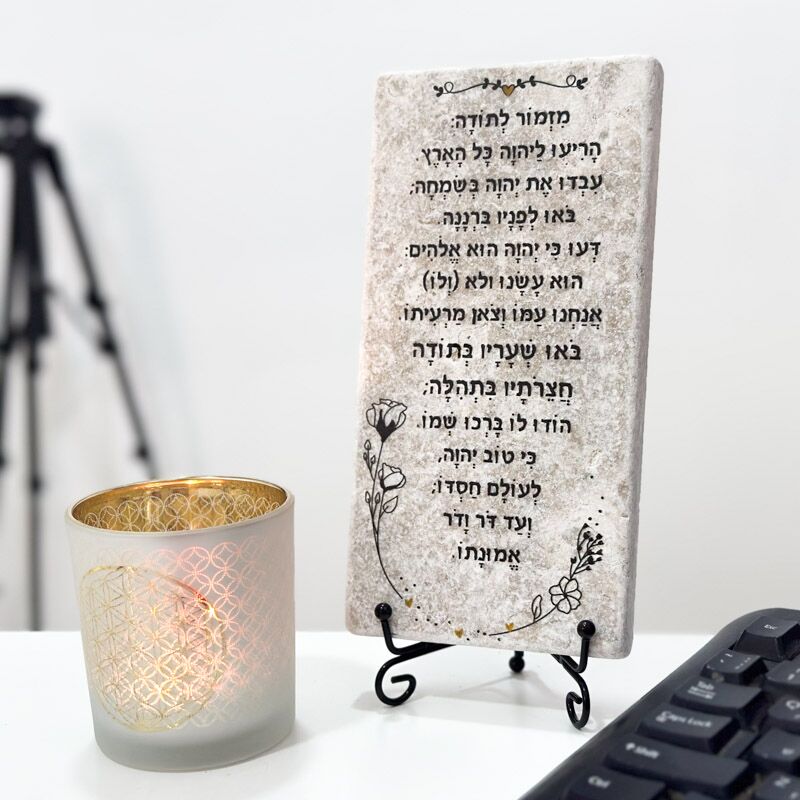 מִזְמוֹר לְתוֹדָה:
הָרִיעוּ לַיהוָה כָּל הָאָרֶץ.
עִבְדוּ אֶת יְהוָה בְּשִׂמְחָה;
בֹּאוּ לְפָנָיו בִּרְנָנָה.
דְּעוּ כִּי יְהוָה הוּא אֱלֹהִים:
הוּא עָשָׂנוּ ולא (וְלוֹ)
אֲנַחְנוּ עַמּוֹ וְצֹאן מַרְעִיתוֹ.
בֹּאוּ שְׁעָרָיו בְּתוֹדָה
חֲצֵרֹתָיו בִּתְהִלָּה;
הוֹדוּ לוֹ בָּרְכוּ שְׁמוֹ.
כִּי טוֹב יְהוָה,
לְעוֹלָם חַסְדּוֹ;
וְעַד דֹּר וָדֹר
אֱמוּנָתוֹ.
Esc
Tab
Caps Lock
Shift
Ctrl